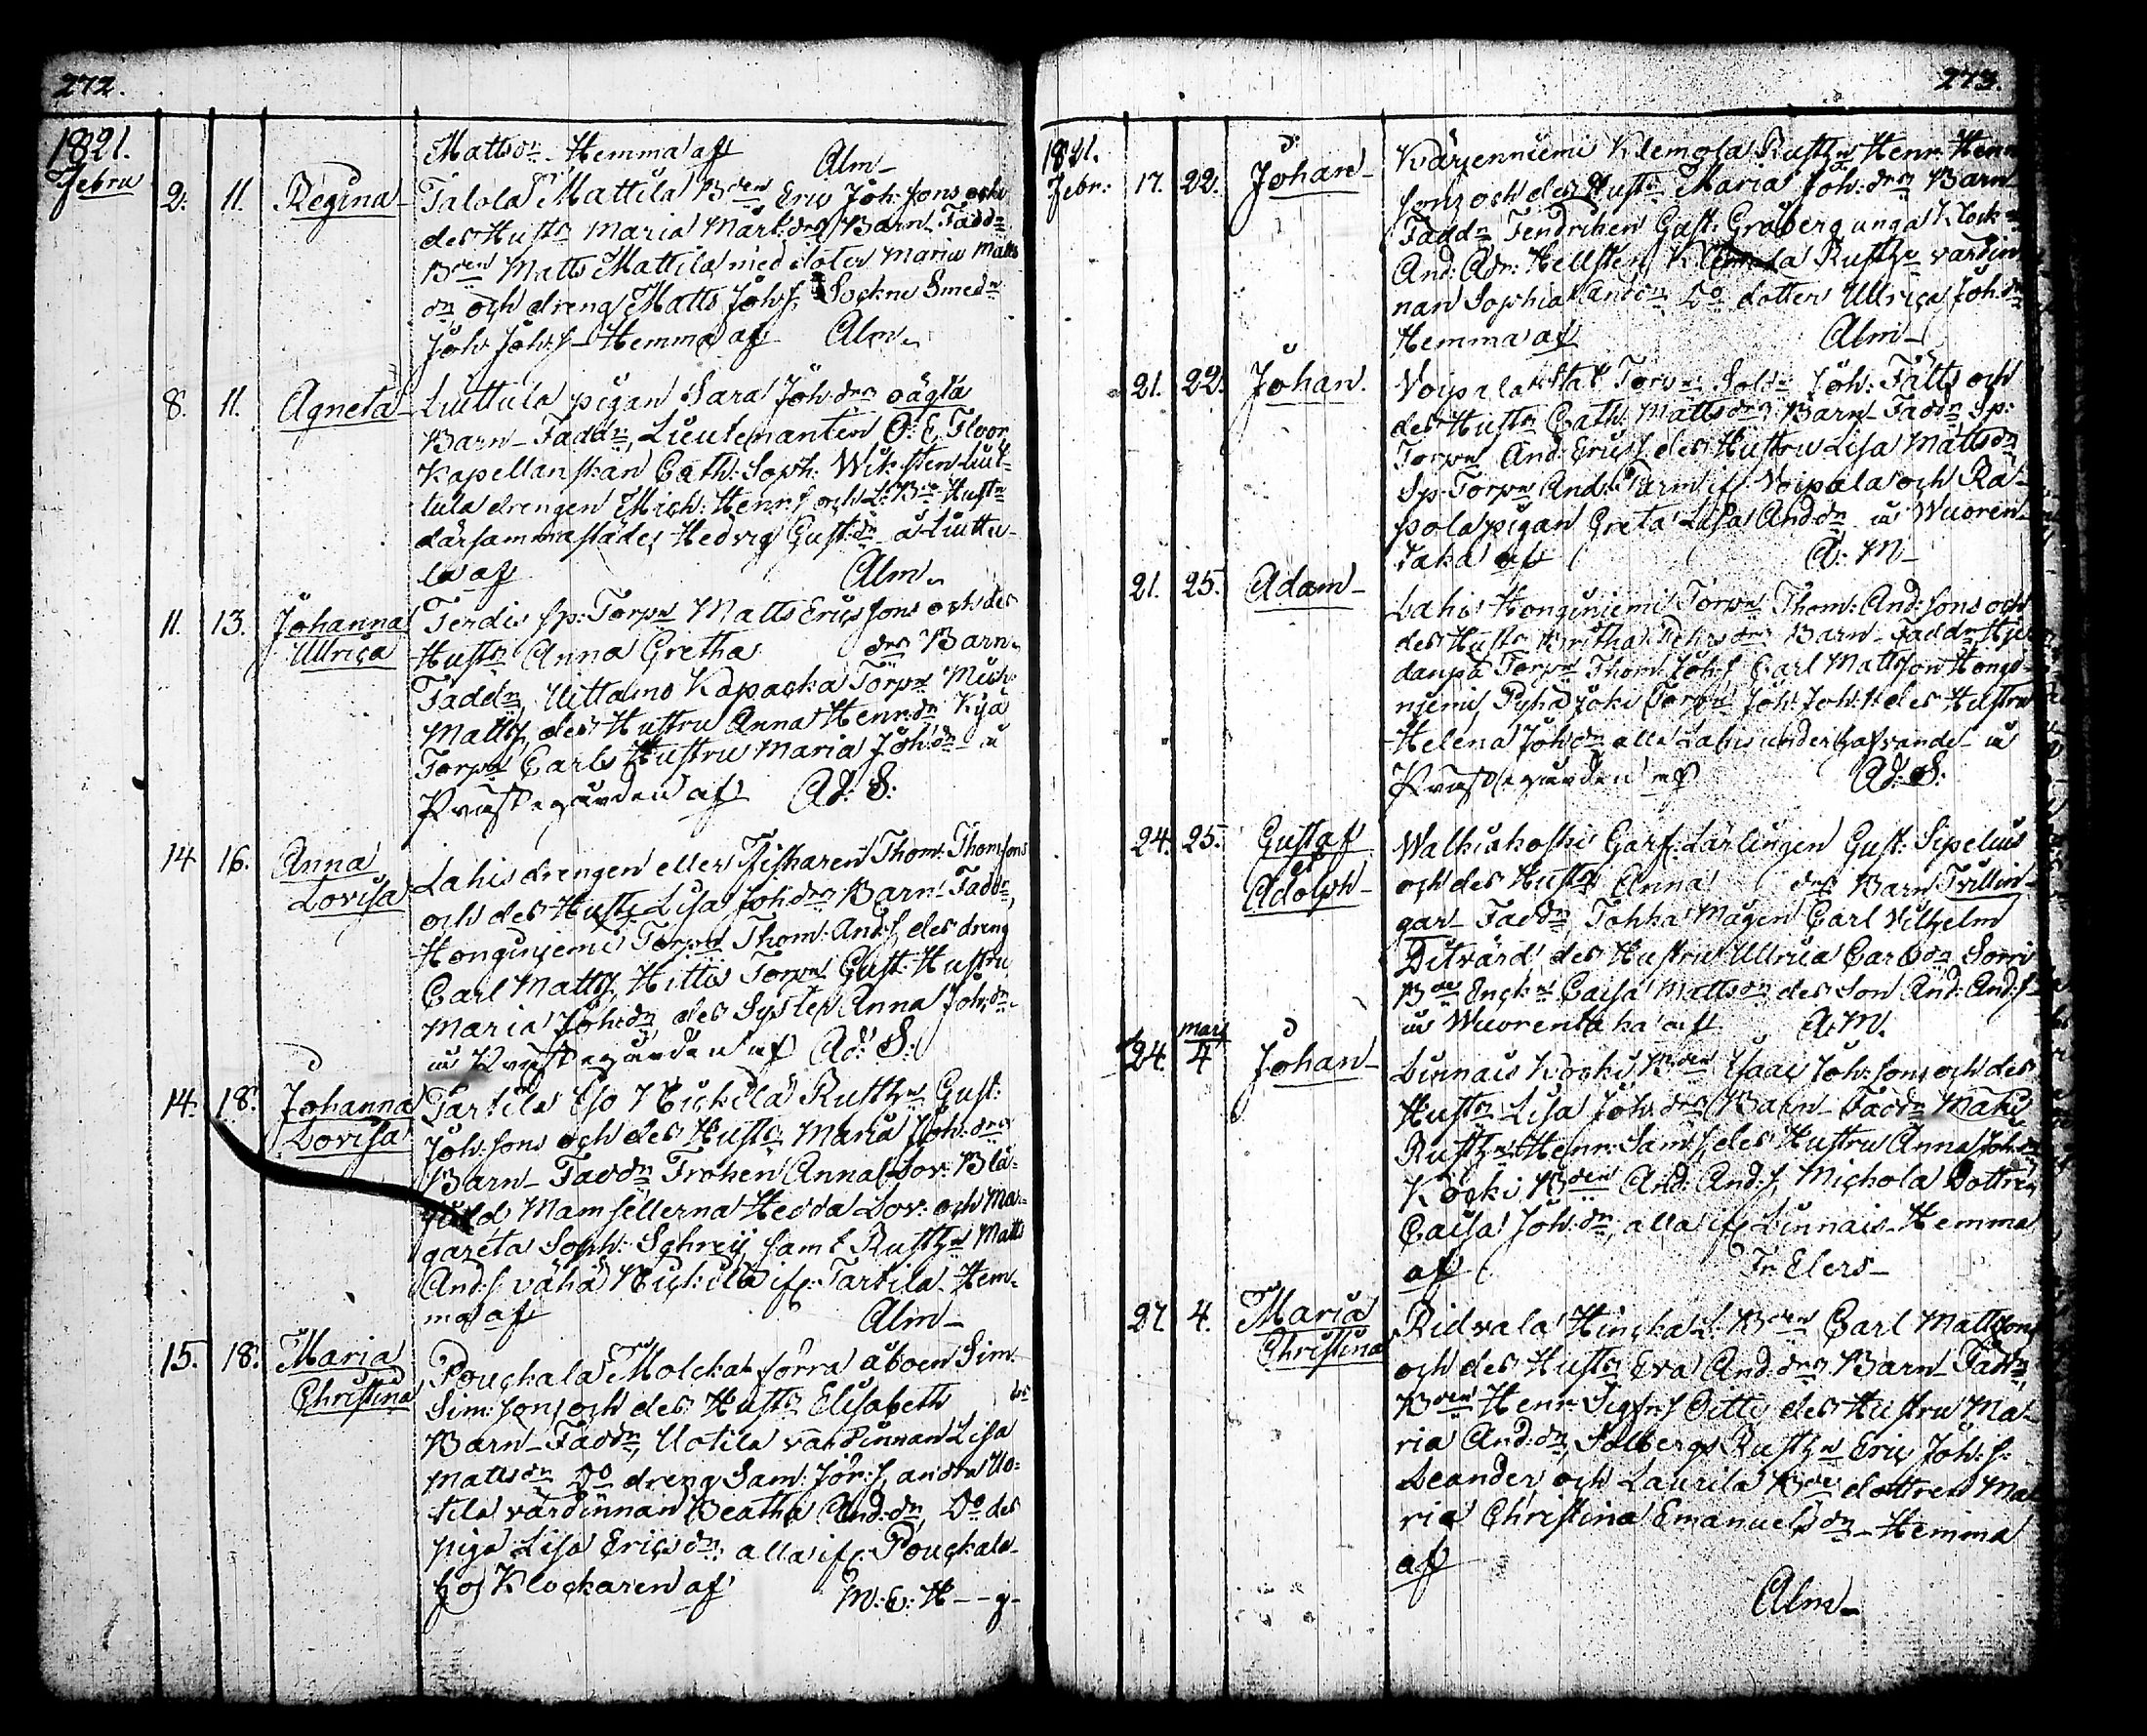 272.
1821.
Febru
Mattsdr. Hemma af Alm_
2. 11. Regina_ Talola Mattila Bden Eric Joh: Sons och
des Hustr Maria Mårt:drs Barn_ Faddr
Bden Matts Mattila med doter Maria Matts
dr och dreng Matts Joh:s. Sockne Smedn
Joh: Joh:s_ Hemma af Alm_
8. 11. Agneta_ Liuttula pigan Sara Joh:drs oägta
Barn_ Faddr, Lieutenanten O: E. Floor
Kapellanskan Cath: Soph: Wiksten Liut-
tula drengen Mich: Henr:s och L: Bde Hustr
därsammastädes Hedvig Gust:dr å Liuttu-
la af Alm_
11. 13. Johanna
Ullrica
Terdis sp: Torpn Matts Erics Sons och des
Hustr Anna Gretha drs Barn_
Faddr, Uittamo Kapacka Torpn Mich:
Matts, des Hustru Anna Henr:dr Kyä
Torpn Carls Hustru Maria Joh:dr u
Prästegården af Ad: S:
14 16. Anna
Lovisa
Lahis drengen eller Fiskaren Thom: Thomsons
och des Hustr Lisa Joh:drs Barn_ Faddr,
Honginiemi Torpn Thom: And:s des dreng
Carl Matts, Hittis Torpn Gust: Hustru
Maria Joh:dr, des Syster Anna Joh:dr
u Prästegården af Ad: S:
14. 18. Johanna
Lovisa
Tarttila Iso Nickilä Rusth:n Gust:
Joh: Sons och des Hustr Maria Joh:drs
Barn_ Faddr Fröken Anna Lov: Blå-
fjeld Mamsellerna Hedda Lov: och Mar-
gareta Soph: Schreij samt Rusth:n Matts
And:s vähä Nickilä if: Tarttila_ Hem-
ma af Alm_
15. 18. Maria
Christina
Pouckala Molckat förra åboen Sim:
Sim: Sons och des Hustr Elisabeth drs
Barn_ Faddr, Uotila värdinnan Lisa
Mattsdr Do dreng Sam: Jör:s, andra Uo-
tila värdinnan Beatha And:dr, Do des
piga Lisa Ericsdr alla if: Pouckala_
hos Klockaren af M: E: H__g_
273.
1821.
Febr: 17. 22. Johan_ Kärjenniemi Klemola Rusth:n Henr: Henr
Sons och des Hustr Maria Joh:drs Barn
Faddr Fendriken Gust: Gröberg unga Klockn
And: Adr: Hellsten, Klemola Rusth:n värdin-
nan Sophia And:dr Do dotter Ullrica Joh:dr
Hemma af Alm_
21. 22. Johan. Voipala Torpn Soldn Joh: Fälts och
des Hustr Cath: Matts:drs Barn_ Faddr Sp:
Torpn And: Erics des Hustru Lisa Mattsdr
Sp: Torpn And: if: Voipala och Ra-
pola pigan Greta Lisa And:dr u Wuoren-
taka af A: M_
21. 25. Adam_ Lahis Honginiemi Torpn Thom: And: Sons och
des Hustr Britha drs Barn_ Faddr
Torpn Thom: Joh:s Carl Mattsson Hongi-
niemi, Pyhäjoki Torpn Joh: Joh:s des Hustru
Helena Joh:dr alla Lahis underhafvande_ u
Prästegården af Ad: S:
24. 25. Gustaf
Adolph_
Walkiakoski Garf: Lärlingen Gust: Sipelius
och des Hustr Anna drs Barn Trillin-
gar_ Faddr, Tohka Mågen Carl Vilhelm
Ditvärd des Hustru Ullrica Carlsdr Sorri
Bde Enckn Caisa Mattsdr des Son And: And:s_
u Wuorentaka af A: M.
24. Mars
4 Johan_ Linnais Köcki Bden Isaac Joh: Sons och des
Hustr Lisa Joh:drs Barn_ Faddr Maki
Rusth:n Henr: Sam:s, des Hustru Anna Joh:dr
Köcki Bden And: And:s, Nichola Dottren
Caisa Joh:dr, alla if: Linnais_ Hemma
af Fr: Elers_
27. 4. Maria
Christina
Ridvala Hincka L: Bden Carl Mattssons
och des Hustr Eva And:drs Barn_ Faddr,
Bden Henr: Sigfr:s Oitti des Hustru Ma-
ria And:dr, Solbergs Rusth:n Eric Joh:s:
Leander och Laurila Bde dottren Ma-
ria Christina Emanuelsdr_ Hemma
af
Alm_